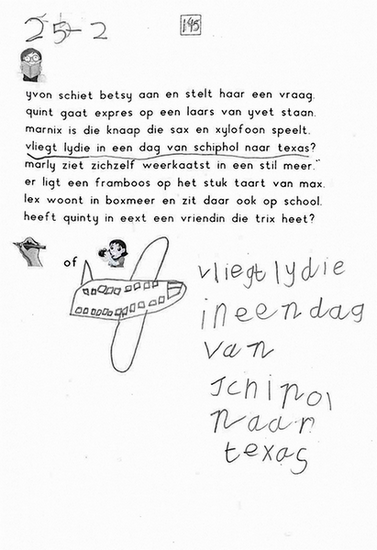 25-2
195
yvon schiet betsy aan en stelt haar een vraag.
quint gaat expres op een laars van yvet staan.
marnix is die knaap die sax en xylofoon speelt.
vliegt lydie in een dag van schiphol naar texas?
marly ziet zichzelf weerkaatst in een stil meer.
er ligt een framboos op het stuk taart van max.
lex woont in boxmeer en zit daar ook op school.
heeft quinty in eext een vriendin die trix heet?
of
vliegt lydie
in een dag
van
schipol
naar
texas